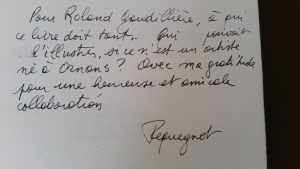 Pour Roland Gaudillière, à qui
ce livre doit tant. Qui pouvait
l'illustrer, si ce n'est un artiste
né à Ornans ? Avec ma gratitude
pour une heureuse et amicale
collaboration